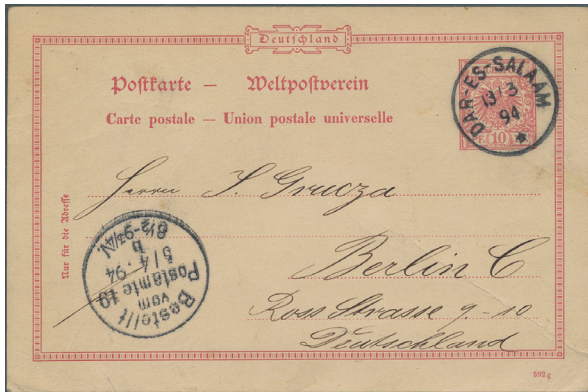 Deutschland
Postkarte — Weltpostverein
Carte postale — Union postale universelle
DAR-ES-SALAAM
13/3
94
10
Nur für die Adresse
Herrn S. Grucza
Berlin C
Ross Strasse 9-10
Deutschland
Bestellt
vom
Postamte 19
5/4.94
8½-9¾N.
592 g